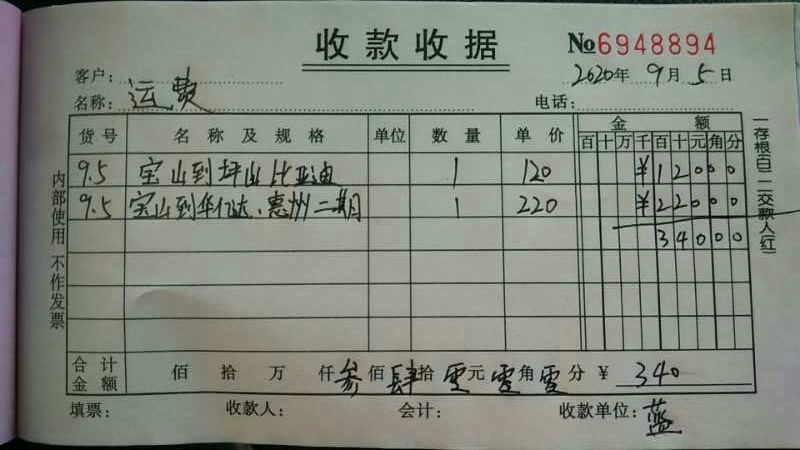 收款收据 №6948894
客户: 2020年9月5日
名称: 运费 电话:
货号 名称及规格 单位 数量 单价 金额
百十万千百十元角分
9.5 宝山到坪山比亚迪 1 120 ¥12000
9.5 宝山到华亿达、惠州二期 1 220 ¥22000
34000
合计金额 佰拾万仟叁佰肆拾零元零角零分 ¥ 340
填票: 收款人: 会计: 收款单位: 蓝
内部使用 不作发票
一存根(白) 二交款人(红)